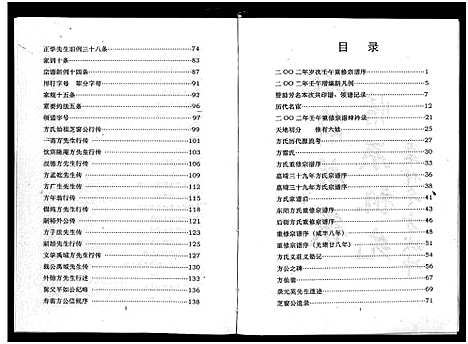 目 录
二〇〇二年岁次壬午重修宗谱序 1
二〇〇二年壬午增编新凡例 5
登赔芳名本次共印谱、领谱记录 7
历代名宦 12
二〇〇二年壬午重修宗谱峰衿录 21
天地初分 惟有六雄 24
方氏历代源流考 27
方雷氏 31
方氏重修宗谱序 33
嘉靖三十九年方氏宗谱序 35
嘉靖三十九年方氏宗谱序 38
方氏宗谱前 41
东阳方氏重修宗谱序 45
后街方氏重修宗谱序 48
重修宗谱序（咸丰八年） 51
重修宗谱序（光绪廿八年） 54
方氏义庄义塾记 57
方公之碑 62
方依翁 66
录元英先生遗迹 69
芝窗公遗录 71
正学先生旧例三十八条 74
家训十条 83
宗谱新例十四条 87
排行字母 辈分字母 90
家规十五条 91
重要约法五条 96
领谱字号 97
方氏始祖芝窗公行传 99
一斋方先生行传 100
汉德方先生行传 106
方孟乾先生传 108
方广生先生传 110
方年翁行传 110
锦鸿方先生行传 112
嗣裕外公传 115
方子洪先生传 118
嗣超先生行传 121
文学禹城方先生行传 125
我公禹城先生行传 128
外锦方先生行传 130
舅父平如公纪略 136
寿翁方公信枫序 138